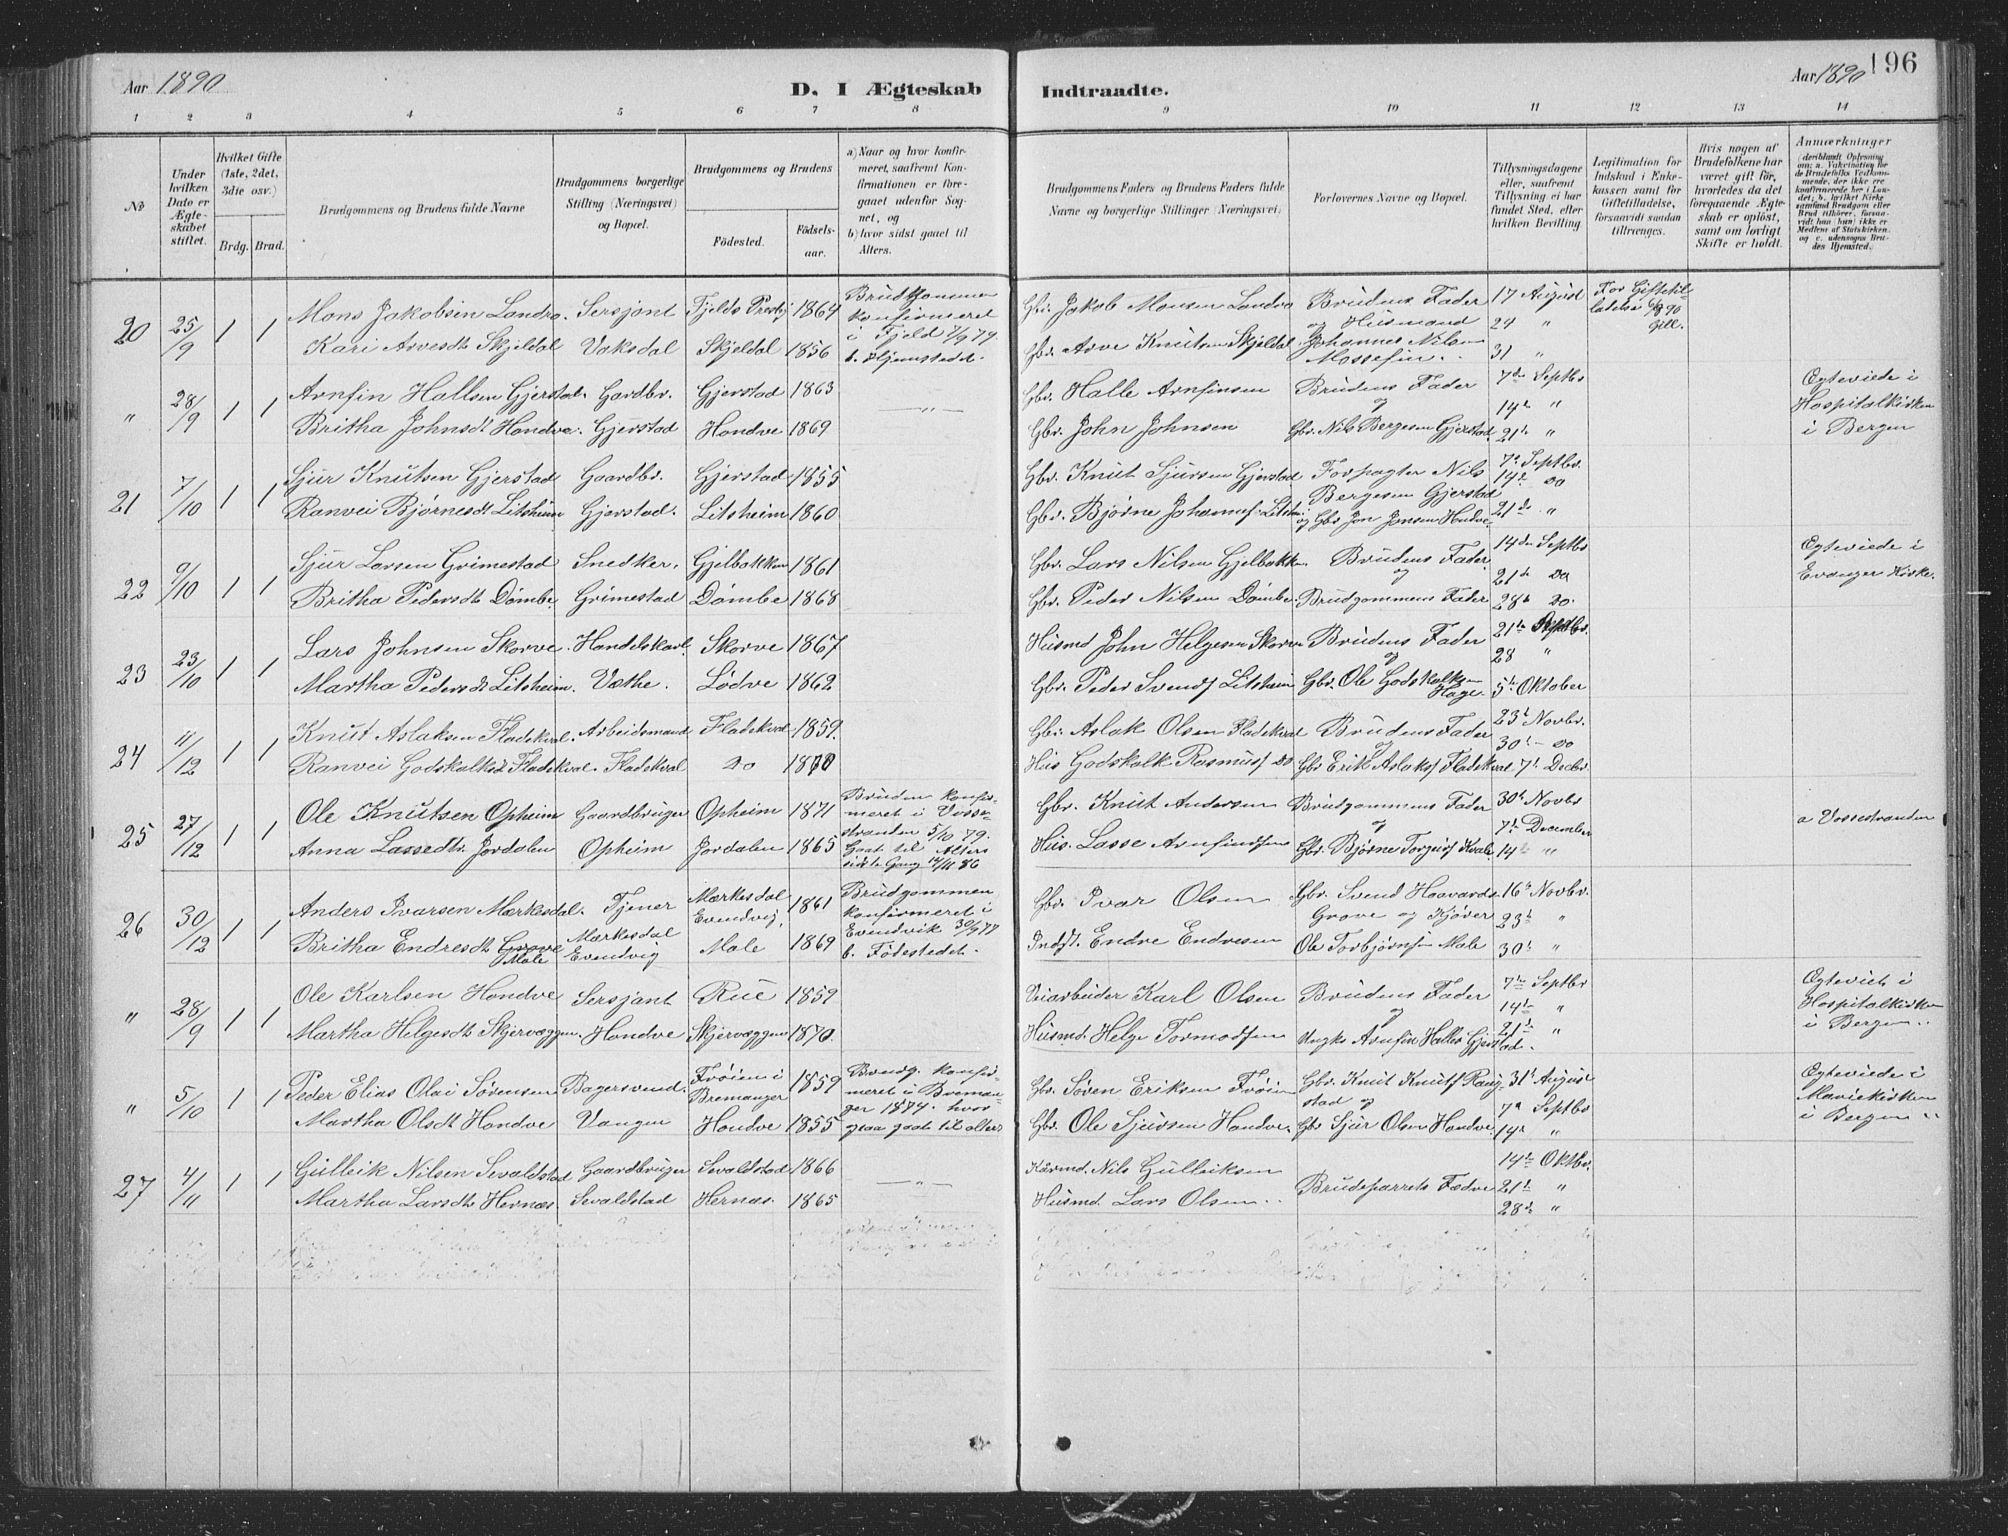 Aar 1890
D. I Ægteskab Indtraadte.
Aar 1890 196
1 2 3 4 5 6 7 8 9 10 11 12 13 14
No
Under hvilken Dato er Ægteskabet stiftet.
Hvilket Gifte (1ste, 2det, 3die osv.)
Brdg. Brud.
Brudgommens og Brudens fulde Navne
Brudgommens borgerlige Stilling (Næringsvei) og Bopæl.
Brudgommens og Brudens
Fødested. Fødselsaar.
a) Naar og hvor konfirmeret, saafremt Konfirmationen er foregaaet udenfor Sognet, og
b) hvor sidst gaaet til Alters.
Brudgommens Faders og Brudens Faders fulde Navne og borgerlige Stillinger (Næringsvei)
Forlovernes Navne og Bopæl.
Tillysningsdagene eller, saafremt Tillysning ei har fundet Sted, efter hvilken Bevilling
Legitimation for Indskud i Enkekassen samt for Giftetilladelse, forsaavidt saadan tiltrænges.
Hvis nogen af Brudefolkene har været gift før, hvorledes da det foregaaende Ægteskab er opløst, samt om lovligt Skifte er holdt.
Anmærkninger
20 25/9 1 1
Mons Jakobsen Landro. Sersjant Fjelds Prestgj 1864
Kari Arvesdt Skjeldal Vaksdal Skjeldal 1856
Brudgommen konfirmeret i Fjeld 7/9 79. b. Hjemstedet.
Gbr. Jakob Monsen Landro
Gbr. Arve Knutsen Skjeldal
Brudens Fader og Husmand Johannes Nilsen Mossefin.
17 August
24 "
31 "
For Giftetilladelse 6/8 90 Gill.
" 28/9 1 1
Arnfin Hallsen Gjerstad. Gardbr. Gjerstad 1863
Britha Johnsdt Hondve. Gjerstad Hondve 1869
— " —
Gbr. Halle Arnfinsen
Gbr. John Johnsen
Brudens Fader og
Gbr. Nils Bergesen Gjerstad
7de Septbr
14de "
21de "
Ægteviede i Hospitalkirken i Bergen
21 7/10 1 1
Sjur Knutsen Gjerstad Gaardbr. Gjerstad 1855
Ranvei Bjørnesdt Litsheim Gjerstad. Litsheim 1860
Gbr. Knut Sjursen Gjerstad
Gbr. Bjørne Johannes Litsheim
Forpagter Nils Bergesen Gjerstad
og Gbr Jon Jonsen Hondve.
7de Septbr.
14de do
21de "
22 9/10 1 1
Sjur Larsen Grimestad Snedker. Gjelbakken 1861
Britha Pedersdt Dømbe Grimestad Dømbe 1868
Gbr. Lars Nilsen Gjelbakken
Gbr. Peder Nilsen Dømbe.
Brudens Fader og
Brudgommens Fader
14de Septbr
21de do
28de do.
Ægteviede i Evanger Kirke.
23 23/10 1 1
Lars Johnsen Skorve. Handelskarl. Skorve 1867
Martha Pedersdt Litsheim. Væthe. Lødve 1862
Husmd John Helgesen Skorve
Gbr. Peder Svends Litsheim
Brudens Fader og
Gbr. Ole Godskalksen Hage.
21de Septbr.
28 "
5te Oktober
24 11/12 1 1
Knut Aslaksen Fladekval. Arbeidsmand Fladekval 1859.
Ranvei Godskalksdt Fladekval. Fladekval do 1870
Gbr. Aslak Olsen Fladekval
Hus Godskalk Rasmuss do
Brudens Fader og
Gbr Erik Aslaks Fladekval
23de Novbr.
30te - do
7de Decbr.
25 27/12 1 1
Ole Knutsen Opheim Gaardbruger Opheim 1871
Anna Lassedtr Jordalen Opheim Jordalen 1865
Bruden konfirmeret i Vossestranden 5/10 79. Gaat til Alters sidste Gang 14/11 86
Gbr. Knut Andersen
Hus. Lasse Arnfinds­sen
Brudgommens Fader og
Gbr. Bjørne Torgus Kvale
30te Novbr
7de December
14de "
a Vossestranden
26 30/12 1 1
Anders Ivarsen Mærkesdal. Tjener Mærkesdal Evendvig. 1861
Britha Endresdt Grove Male Mærkesdal Evendvig Male 1869
Brudgommen konfirmeret i Evendvik 30/9 77 b. Fødestedet.
Gbr. Ivar Olsen
Indst. Endre Endresen
Gbr. Svend Haavards. Grove og Kjører
Ole Torbjørnsen Male
16de Novbr.
23de "
30te "
" 28/9 1 1
Ole Karlsen Hondve Sersjant Rue 1859
Martha Helgesdt Skjervæggen. Hondve Skjervæggen 1870.
Veiarbeider Karl Olsen
Husmd. Helge Tormodsen
Brudens Fader og
Ungk. Arnfin Halles Gjerstad.
7de Septbr
14de "
21de "
Ægteviet i Hospitalkirken i Bergen.
" 5/10 1 1
Peder Elias Olai Sørensen Bagersvend. Frøien i Bremanger 1859
Martha Olsdt Hondve Vangen Hondve 1855
Brudg. konfirmeret i Bremanger 1874. hvor ogsaa gaat til alters
Gbr. Søren Eriksen Frøien
Gbr. Ole Sjursen Hondve.
Gbr. Knut Knuts Raugstad og
Gbr Sjur Olsen Hondve
31te August
7de Septbr
14de "
Ægteviede i Mariekirken i Bergen
27 4/11 1 1
Gulleik Nilsen Sevaldstad Gaardbruger Sevaldstad 1866
Martha Larsdt Hernæs Sevaldstad Hernæs. 1865
— " —
Kaarmd. Nils Gulleiksen
Husmd. Lars Olsen
Brudeparrets Fædre
14de Oktbr.
21de "
28de "